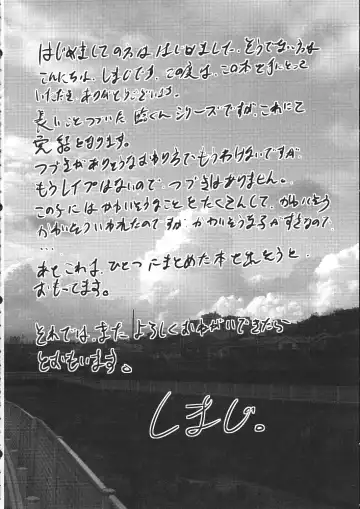 はじめましての方ははじめました。そうでない方は
こんにちわ、しまじです。この度は、この本を手にとって
いただき ありがとうございます。
長いことつづいた 臨くん シリーズですが、これにて
完結となります。
つづきがありそうなおわり方でもうしわけないですが
もうレイプはないので、つづきはありません。
この子にはかわいそうなことをたくさんして、かわいそう
かわいそういわれたのですが、かわいそうな子がすきなので、
…
あとこれは、ひとつにまとめた本を出そうと
おもってます。
それでは、また よろしくおねがいできたら
とおもいます。
しまじ。